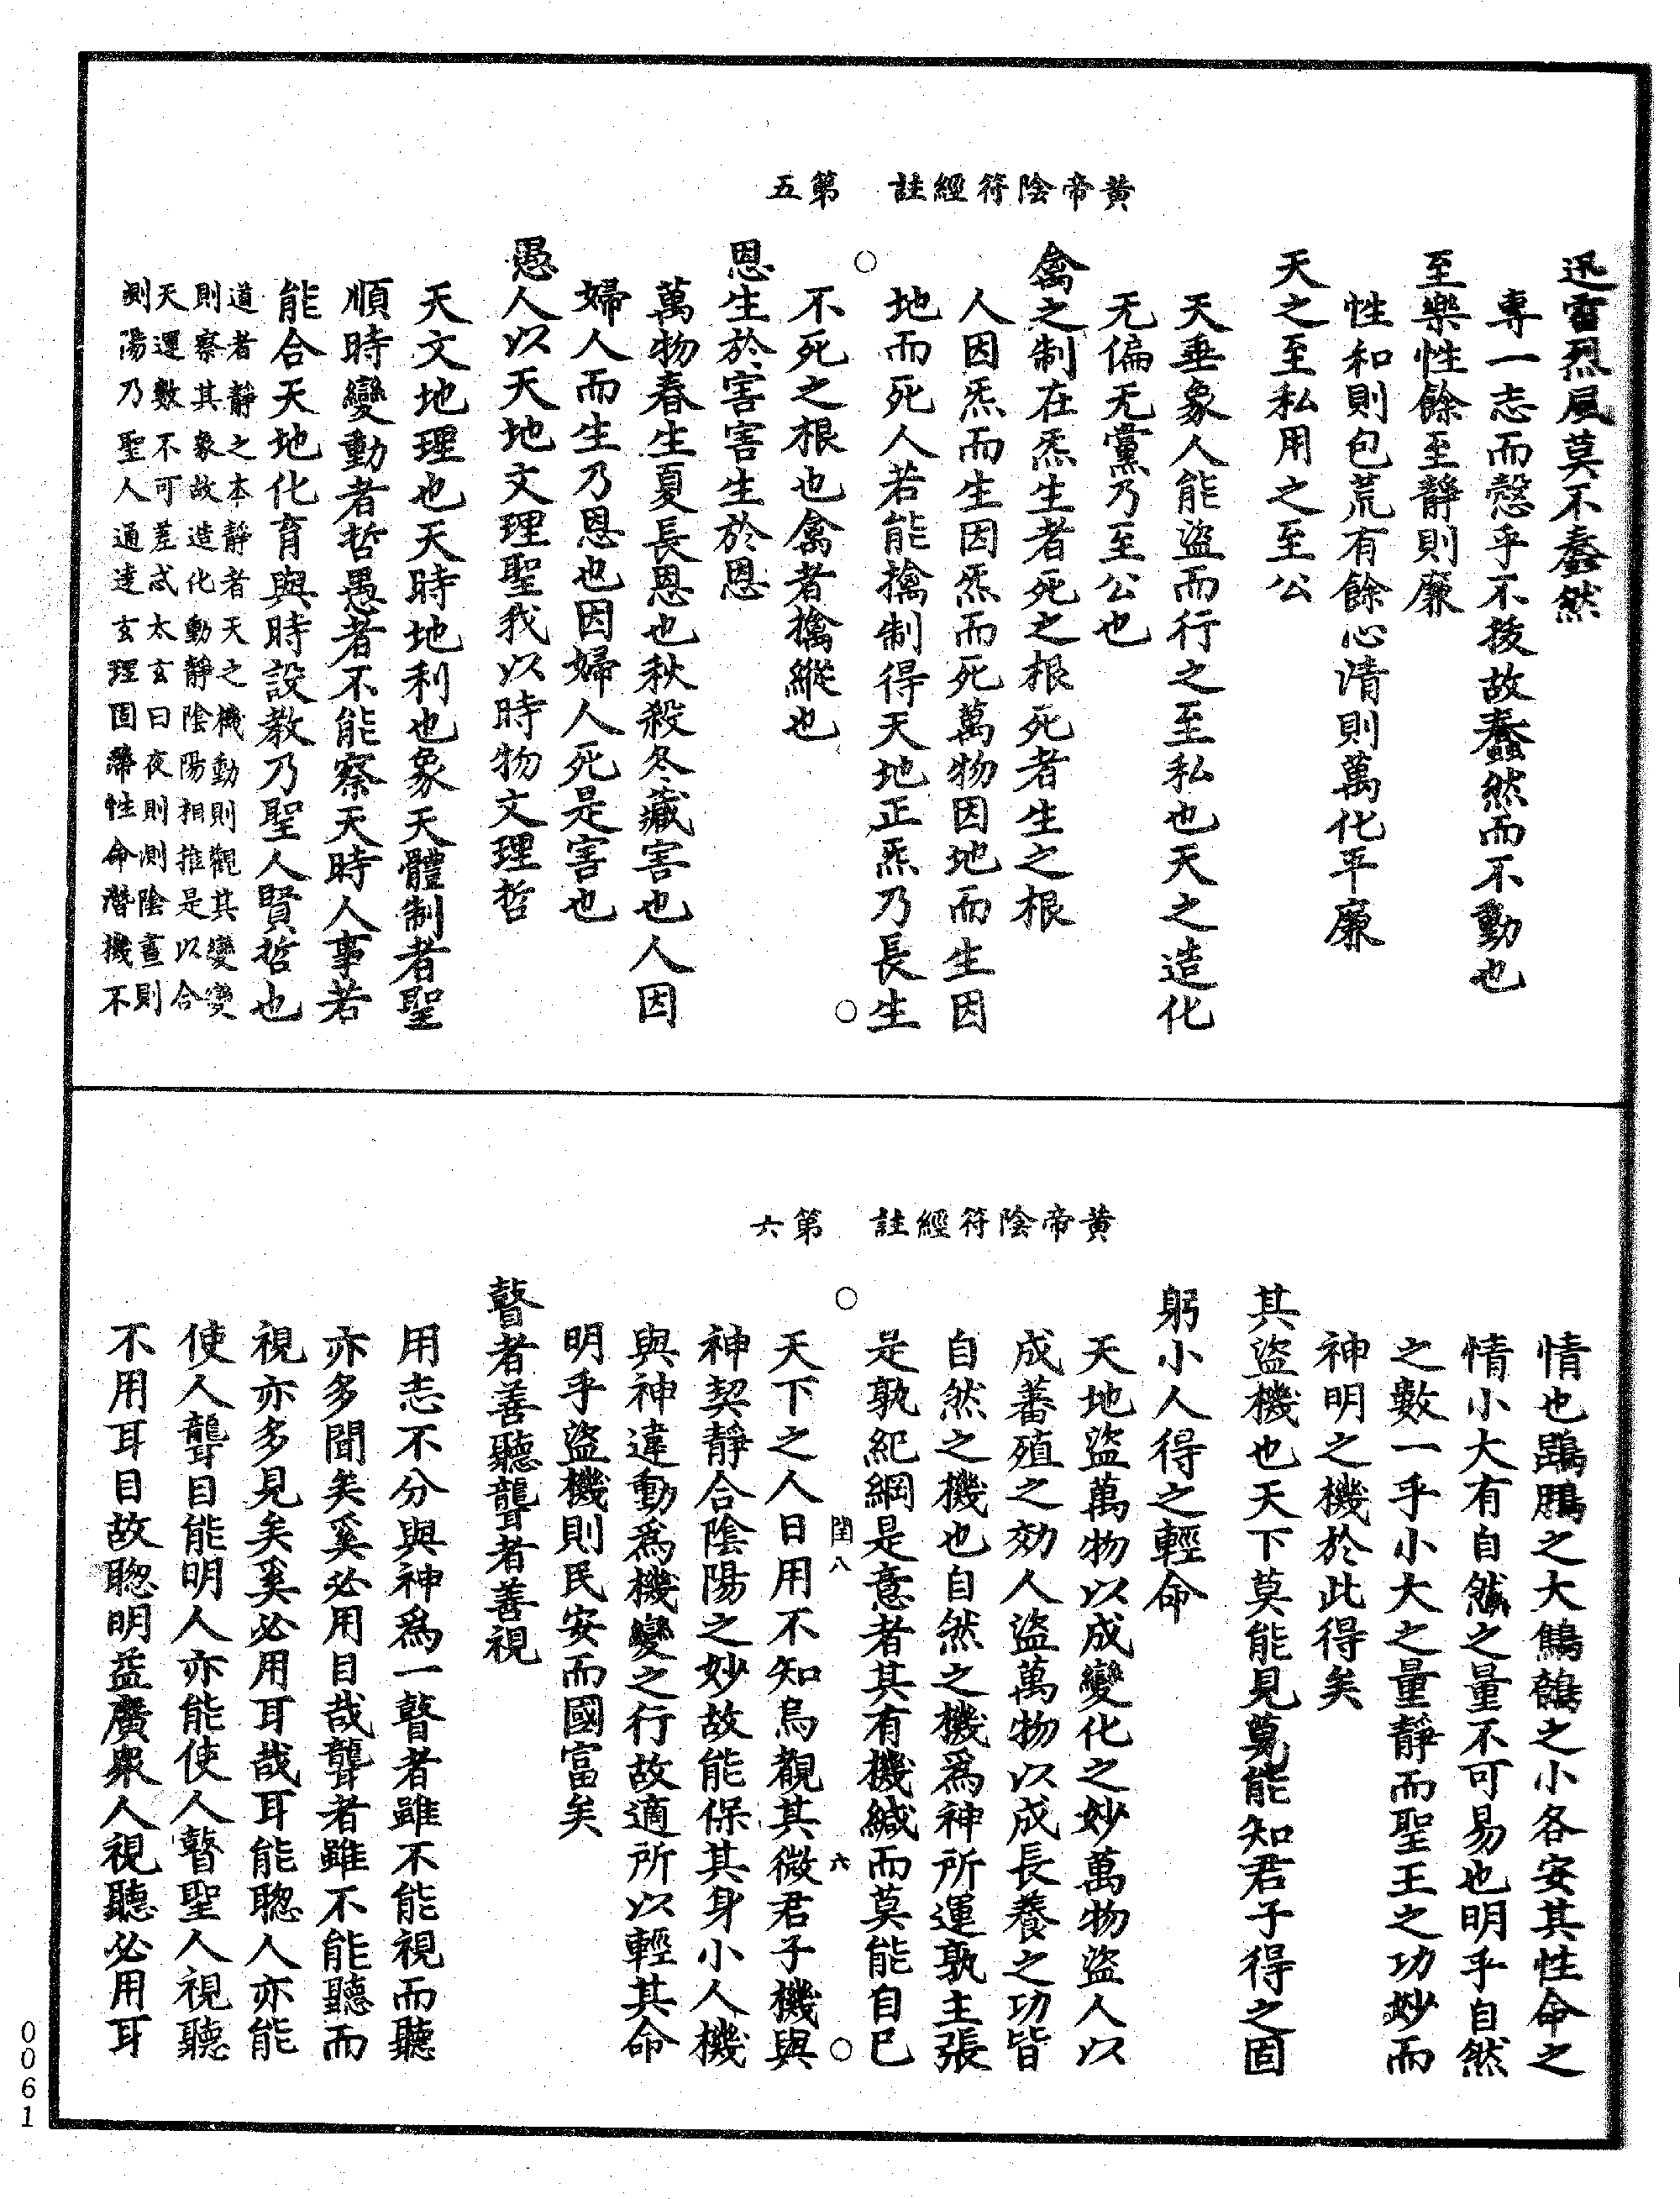 黃帝陰符經註　第五
迅雷烈風莫不蠢然
專一志而慤乎不撓故蠢然而不動也
至樂性餘至靜則廉
性和則包荒有餘心清則萬化平廉
天之至私用之至公
天垂象人能盜而行之至私也天之造化
无偏无黨乃至公也
禽之制在炁生者死之根死者生之根
人因炁而生因炁而死萬物因地而生因
地而死人若能擒制得天地正炁乃長生
不死之根也禽者擒縱也
恩生於害害生於恩
萬物春生夏長恩也秋殺冬藏害也人因
婦人而生乃恩也因婦人死是害也
愚人以天地文理聖我以時物文理哲
天文地理也天時地利也象天體制者聖
順時變動者哲愚者不能察天時人事若
能合天地化育與時設教乃聖人賢哲也
道者靜之本靜者天之機動則觀其變變
則察其象故造化動靜陰陽相推是以合
天運數不可差忒太玄曰夜則測陰晝則
測陽乃聖人通達玄理固滯性命潛機不
黃帝陰符經註　第六
情也鵾鵬之大鷦鷯之小各安其性命之
情小大有自然之量不可易也明乎自然
之數一乎小大之量靜而聖王之功妙而
神明之機於此得矣
其盜機也天下莫能見莫能知君子得之固
躬小人得之輕命
天地盜萬物以成變化之妙萬物盜人以
成蕃殖之効人盜萬物以成長養之功皆
自然之機也自然之機爲神所運孰主張
是孰紀綱是意者其有機緘而莫能自已
閏八　六
天下之人日用不知烏覩其微君子機與
神契靜合陰陽之妙故能保其身小人機
與神違動爲機變之行故適所以輕其命
明乎盜機則民安而國富矣
瞽者善聽聾者善視
用志不分與神爲一瞽者雖不能視而聽
亦多聞矣奚必用目哉聾者雖不能聽而
視亦多見矣奚必用耳哉耳能聰人亦能
使人聾目能明人亦能使人瞽聖人視聽
不用耳目故聰明益廣衆人視聽必用耳
0061